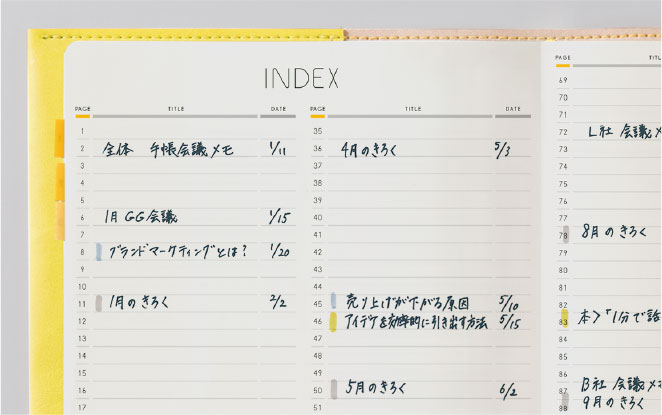 INDEX
PAGE TITLE DATE
1
2 全体 手帳会議メモ 1/11
3
4
5
6 1月 GG会議 1/15
7
8 グランドマーケティングとは? 1/20
9
10
11 1月のきろく 2/2
12
13
14
15
16
17
PAGE TITLE DATE
35
36 4月のきろく 5/3
37
38
39
40
41
42
43
44
45 売り上げが下がる原因 5/10
46 アイデアを効率的に引き出す方法 5/15
47
48
49
50 5月のきろく 6/2
51
PAGE
69
70
71
72 L社 会議メ
73
74
75
76
77
78 8月のきろく
79
80
81
82
83 本>「1分で話
84
85
86
87 B社 会議メモ
88 9月のきろく